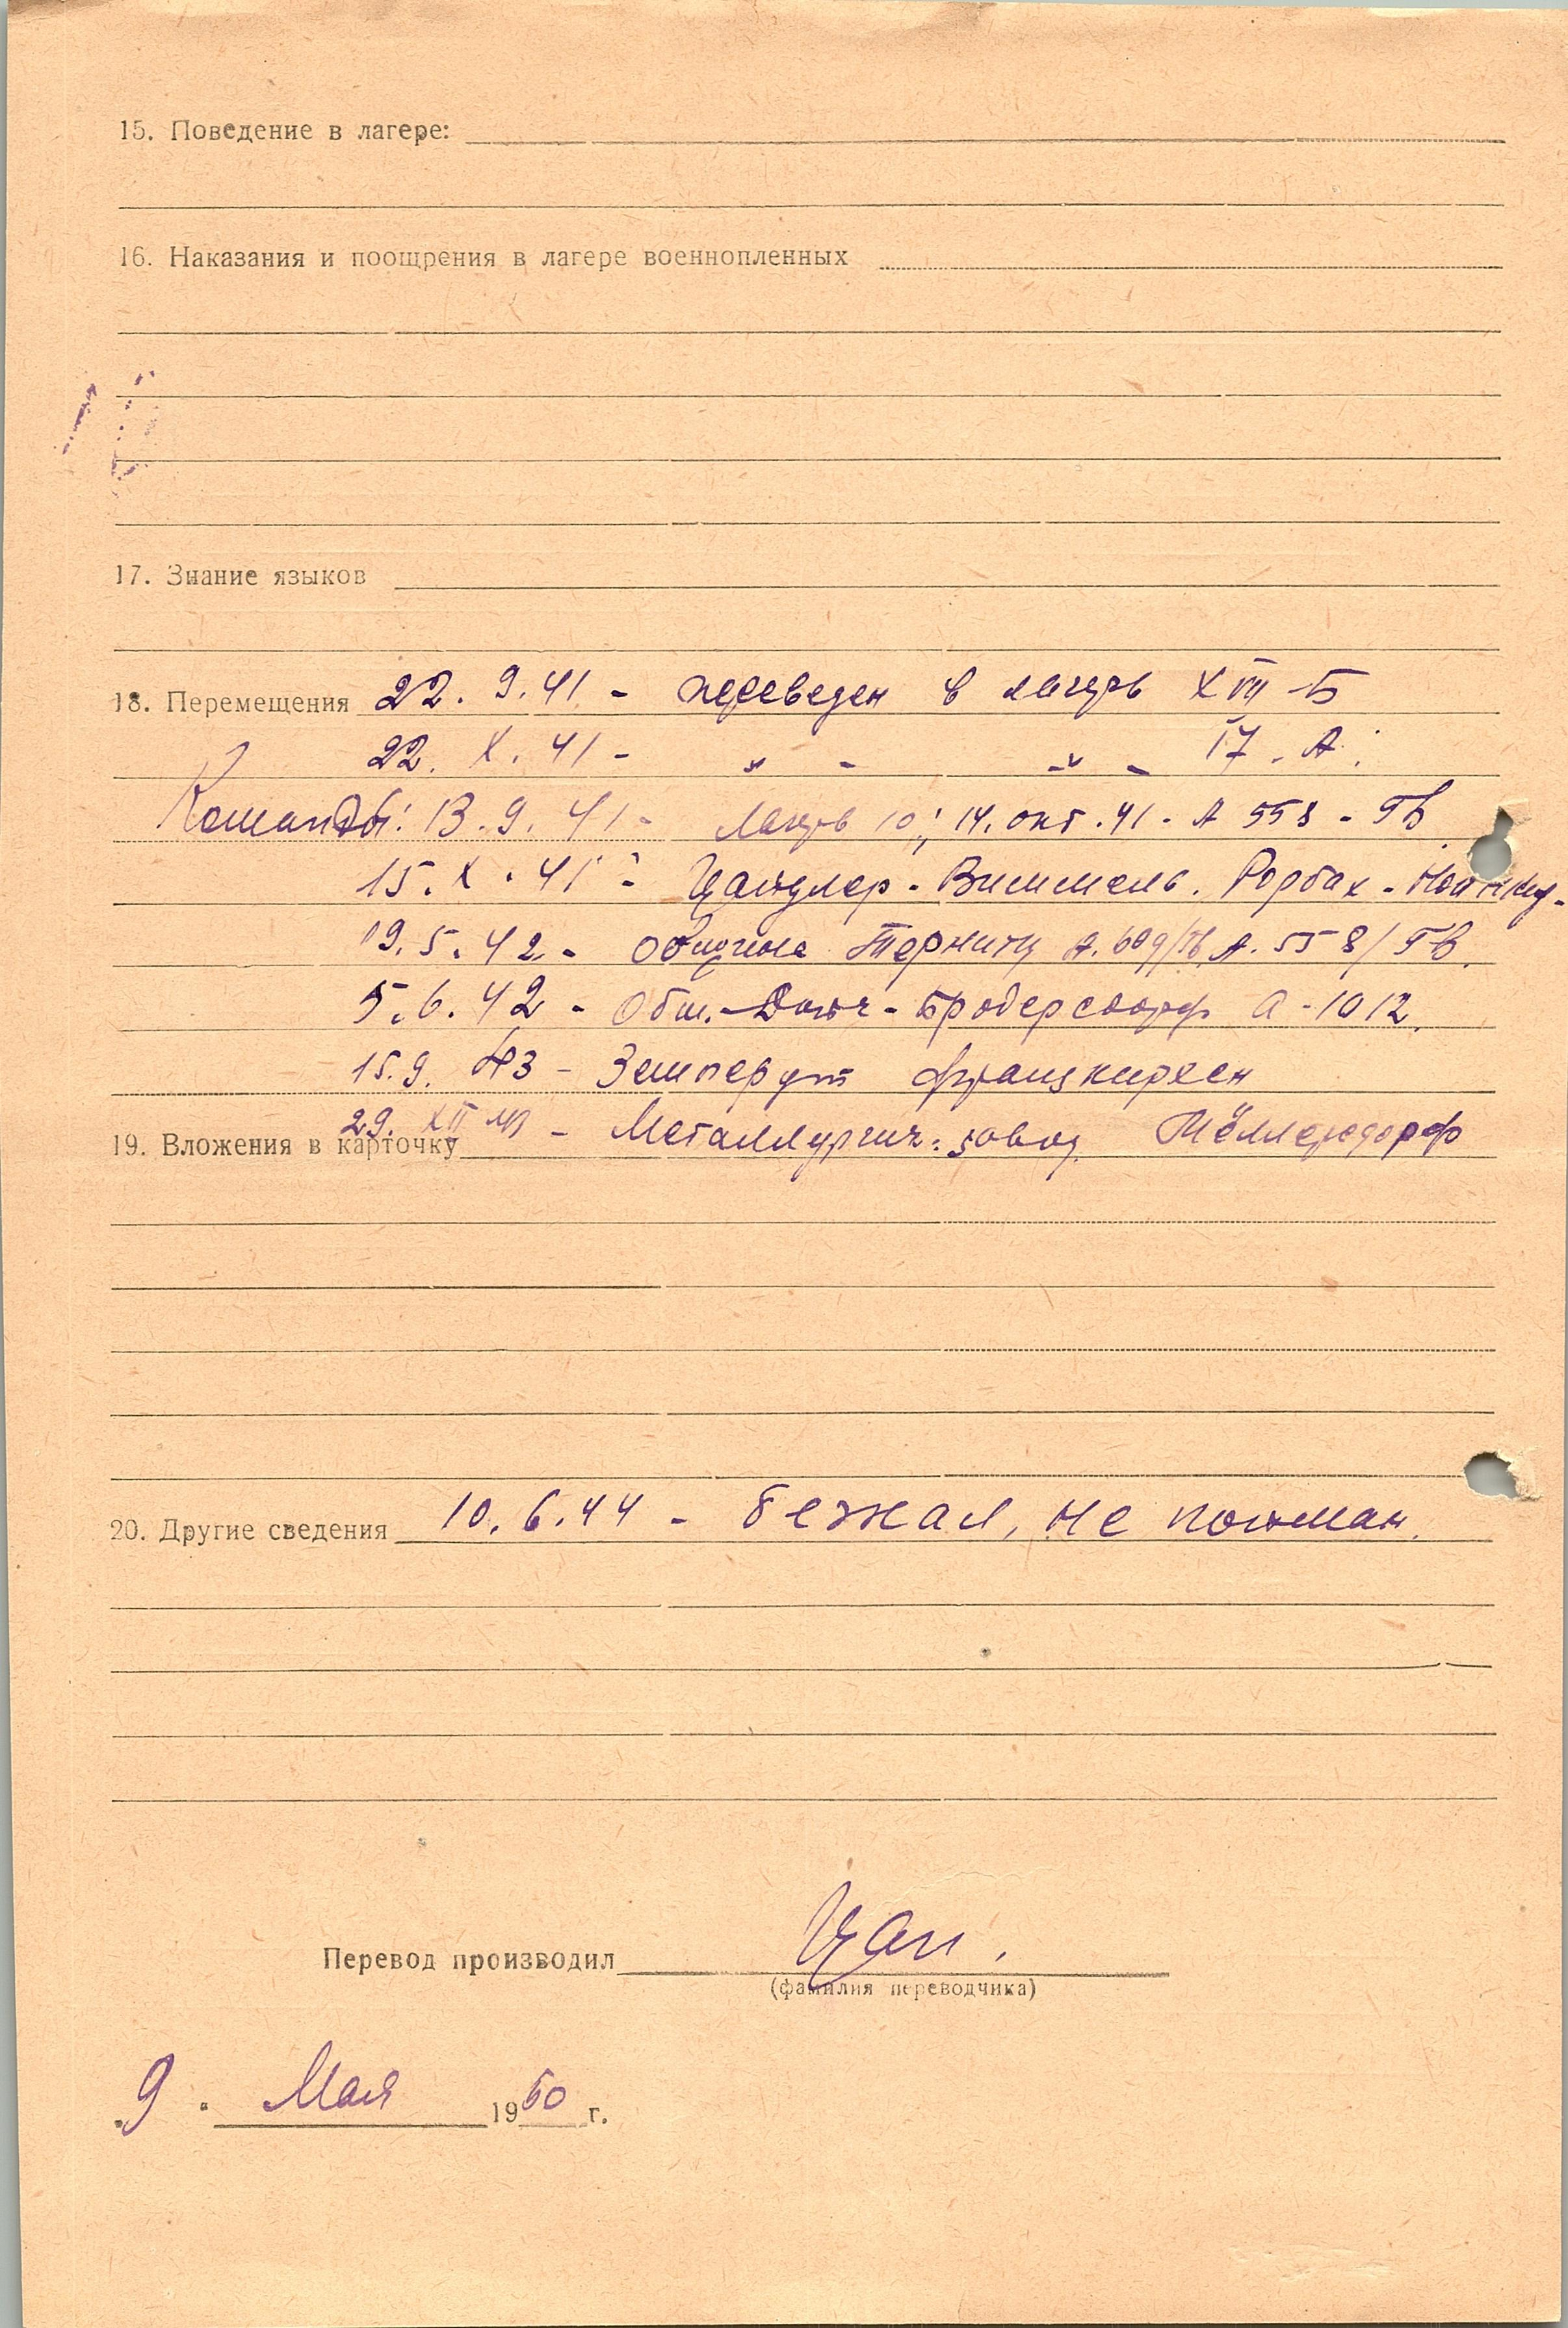 15. Поведение в лагере:
16. Наказания и поощрения в лагере военнопленных
17. Знание языков
18. Перемещения 22. 9. 41 - переведен в лагерь XVII-Б
22. X. 41 - " - - " - 17. А.
Команды: 13. 9. 41 - Лагерь 10; 14. окт. 41 - А 558 - ГВ
15. X. 41 - Цайдлер - Виммель. Рорбах -
19. 5. 42 - Община Терниц А. 609/ГВ, А. 558/ГВ.
5. 6. 42 - Общ. - Дойч - Бродерсдорф А - 1012.
15. 9. 43 - Земперит
29. XII - Металлургич. завод
19. Вложения в карточку
20. Другие сведения 10. 6. 44 - бежал, не пойман.
Перевод производил Цап.
(фамилия переводчика)
"9" Мая 1950 г.